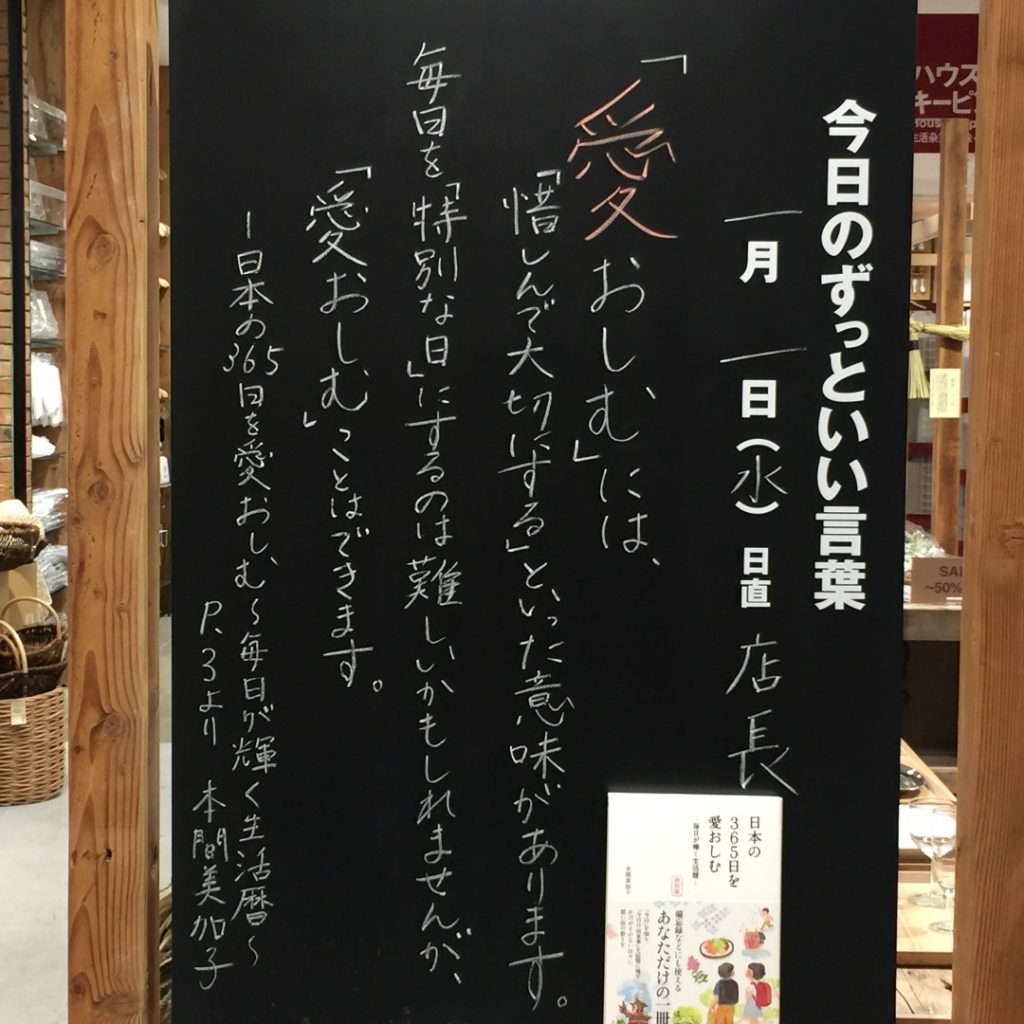 今日のずっといい言葉
一月 一日(水) 日直 店長
「愛おしむ」には、
「惜しんで大切にする」といった意味があります。
毎日を「特別な日」にするのは難しいかもしれませんが、
「愛おしむ」ことはできます。
ー日本の365日を愛おしむ～毎日が輝く生活暦～
P.3より 本間美加子
日本の
365日を
愛おしむ
―毎日が輝く生活暦―
本間美加子
備忘録などにも使える
あなただけの一冊
ハウス
キーピン
SAL
~50%